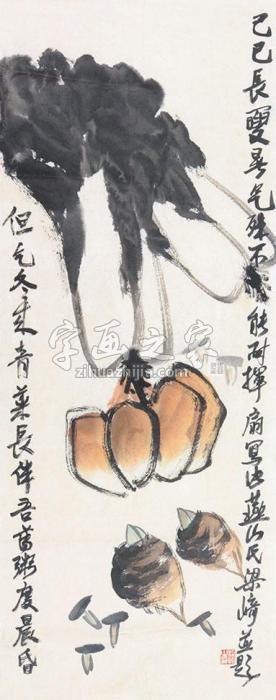 己巳長夏暑气殊不能耐揮扇寫此燕山民梁崎並題
但乞冬来青菜長伴吾粥度晨昏
字画之家
zihuazhijia.com